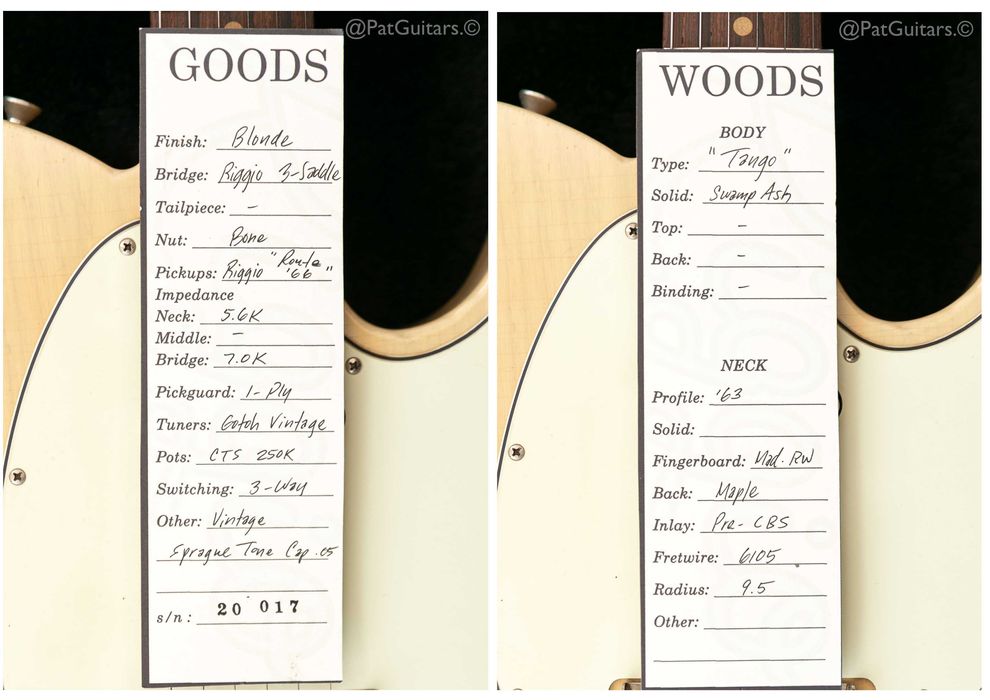 @PatGuitars.©
GOODS
Finish: Blonde
Bridge: Riggio 3-Saddle
Tailpiece: -
Nut: Bone
"Route
Pickups: Riggio '66"
Impedance
Neck: 5.6K
Middle: -
Bridge: 7.0K
Pickguard: 1-Ply
Tuners: Gotoh Vintage
Pots: CTS 250K
Switching: 3-Way
Other: Vintage
Sprague Tone Cap .05
s/n: 20 017
@PatGuitars.©
WOODS
BODY
Type: "Tango"
Solid: Swamp Ash
Top: -
Back: -
Binding: -
NECK
Profile: '63
Solid:
Fingerboard: Mad. RW
Back: Maple
Inlay: Pre-CBS
Fretwire: 6105
Radius: 9.5
Other: